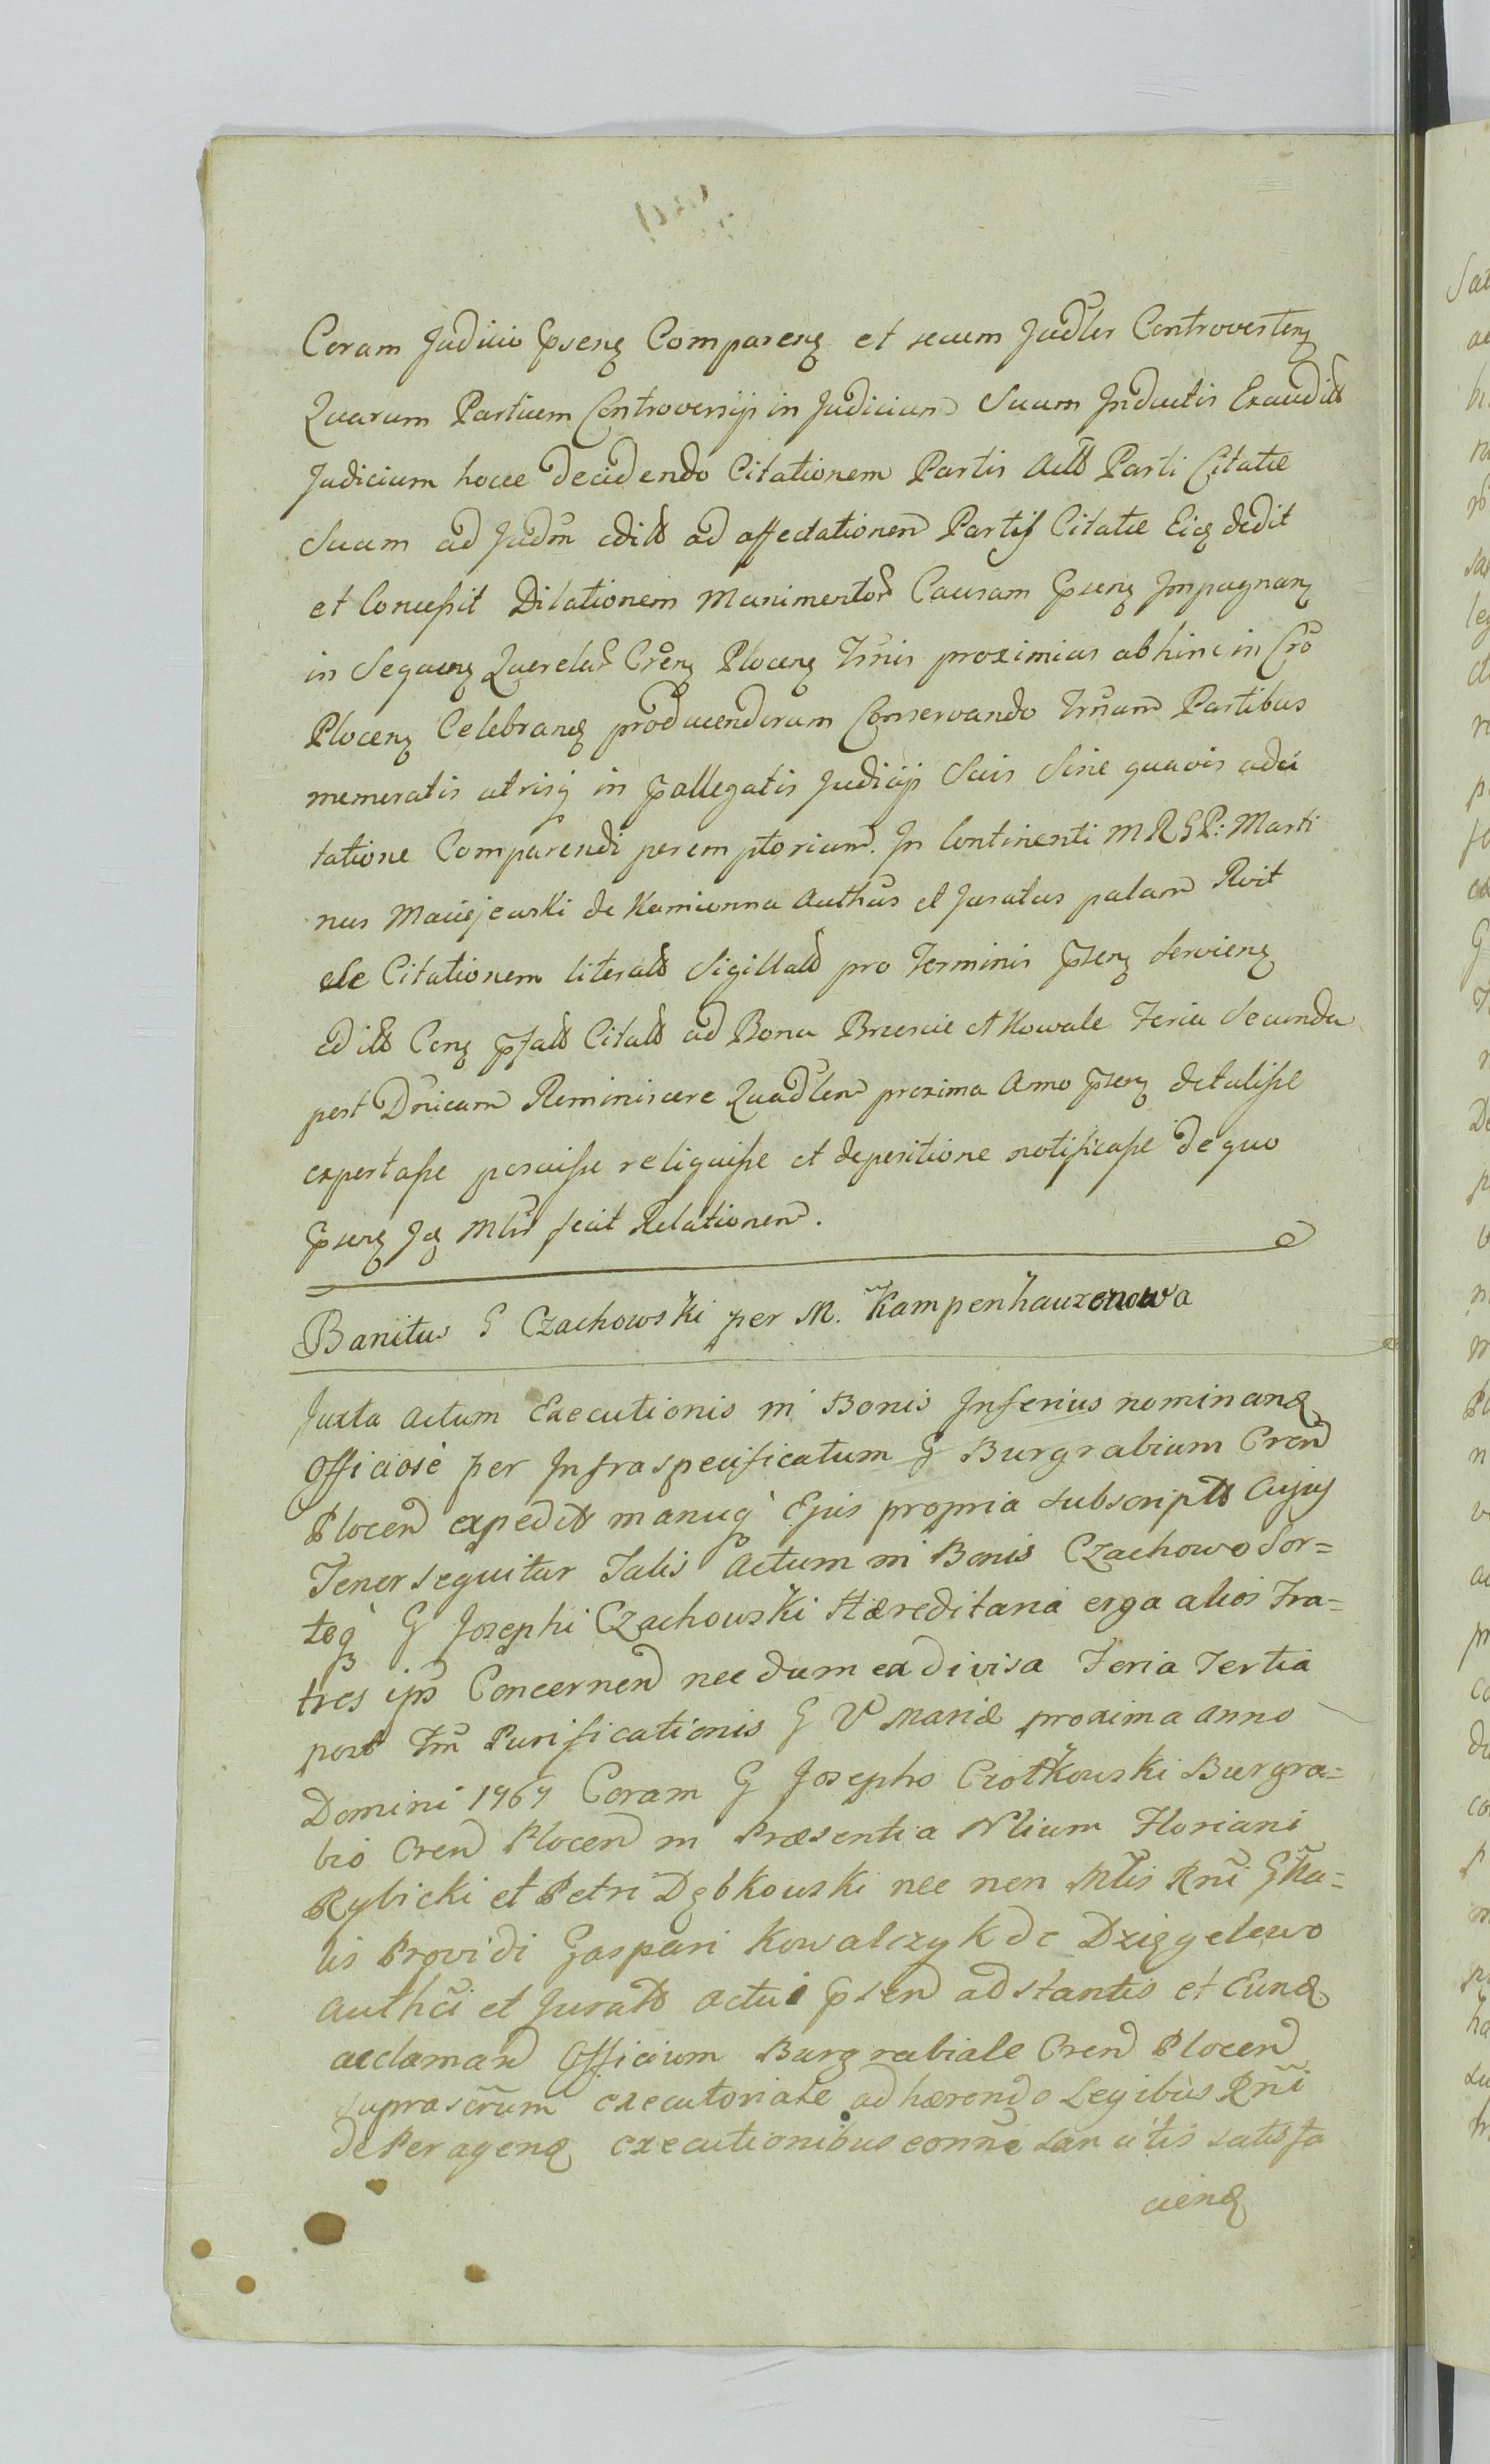 Coram Judicio p̃senꝫ Comparenꝫ et secum Judler Controvertenꝫ
Quarum Partium Controversijs in Judicium Suum Inductis Exaudits
Judicium hocce decidendo Citationem Partis Acts Parti Citatæ
Suam ad Judm edits ad affectationem Partis Citatæ Eiꝫ dedit
et Concessit Dilationem Munimentor Causam p̃senꝫ Impugnanꝫ
in Sequenꝫ Querelar Crenꝫ Plocenꝫ Trnis proximius abhinc in Cro
Plocenꝫ Celebranꝫ producendorum Conservando Trnum Partibus
memoratis utrisq in p̃allegatis Judicijs Suis Sine quavis adci
tatione Comparendi peremptorium. In Continenti M R G P: Marti
nus Maciejewski de Kamionna Authus et Juratus palam Rvit
se Citationem literald Sigillatd pro Terminis p̃senꝫ Servienꝫ
edits Conꝫ p̃fatd Citatd ad Bona Brzescie et Kowale Feria Secunda
post Dnicam Reminiscere Quadlem proxima Anno p̃senꝫ detulisse
exportasse posuisse reliquisse et depositione notificasse de quo
p̃senꝫ Jꝫ Mlis fecit Relationem.
Banitus G Czachowski per M. Kampenhauzenowa
Juxta Actum Executionis in Bonis Inferius nominanꝫ
Officiose per Infraspecificatum G Burgrabium Cren
Plocen expedits manuq Ejus propria subscripts Cujus
Tenor sequitur Talis Actum in Bonis Czachowo Sor=
teq G Josephi Czachowski Hæreditaria erga alios Fra=
tres ips Concernen necdum ex divisa Feria Tertia
post Fm Purificationis G V Mariæ proxima Anno
Domini 1767 Coram G Josepho Ciołkowski Burgra=
bio Cren Plocen in Præsentia Nlium Floriani
Rybicki et Petri Dębkowski nec non Mlis Rni Gña=
lis Providi Gaspari Kowalczyk de Dzięgelewo
Authci et Jurats actui p̃sen adstantis et Eunꝫ
acclaman Officium Burgrabiale Cren Plocen
suprascrum executoriale adhærendo Legibus Rni
de Peragenꝫ executionibus eonne sancitis satisfa
cienꝫ